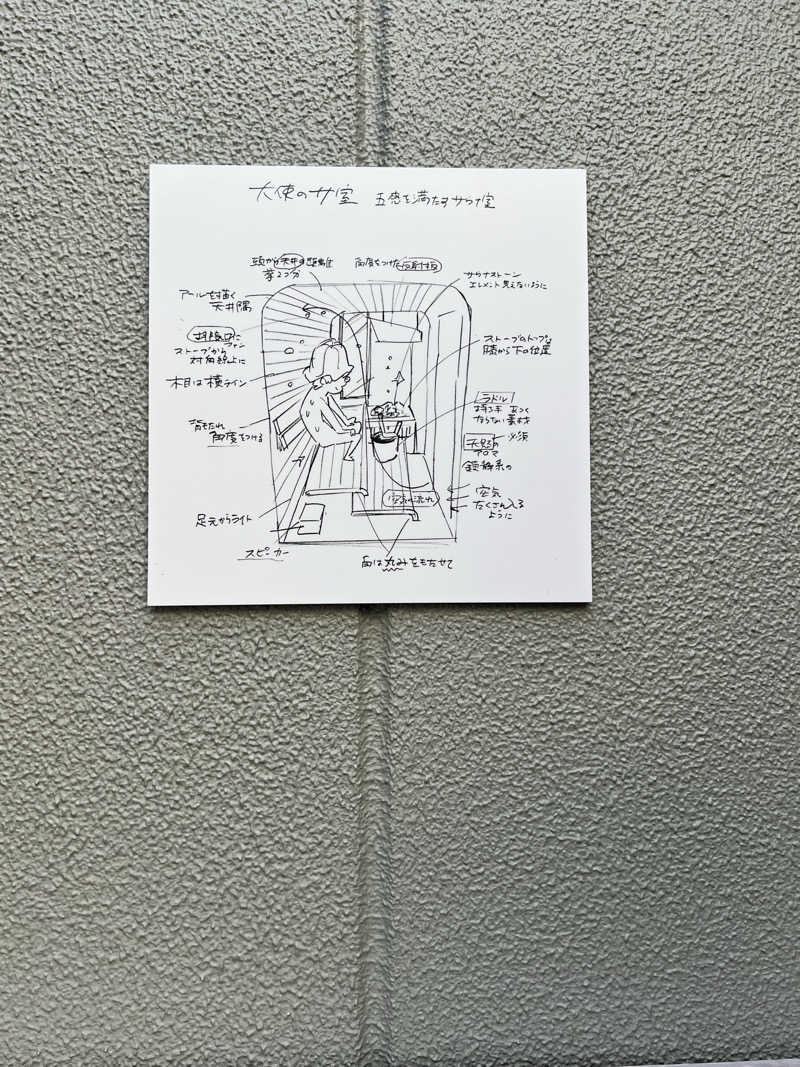 大使のサ室 五感を満たすサウナ室
頭から天井の距離は
拳2つ分
角度をつけた反射板
サウナストーン
エレメント見えないように
アールを描く
天井隅
排気口に
ファン
ストーブから
対角線上に
ストーブのトップは
膝から下の位置
木目は横ライン
ラドル
持つ手 あつく
ならない素材
必須
背もたれ
角度をつける
天然の
アロマ
鎮静系の
空気の流れ
空気
たくさん入る
ように
足元からライト
スピーカー
角は丸みをもたせて